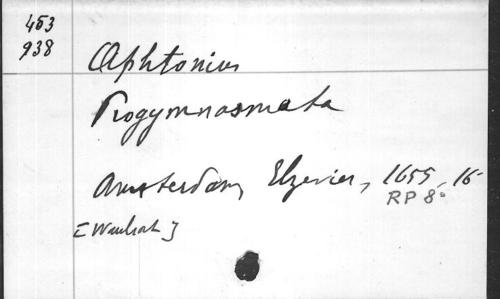 453
938
Aphtonius
Progymnasmata
Amsterdam, Elzevier, 1655, 16-
RP 8°